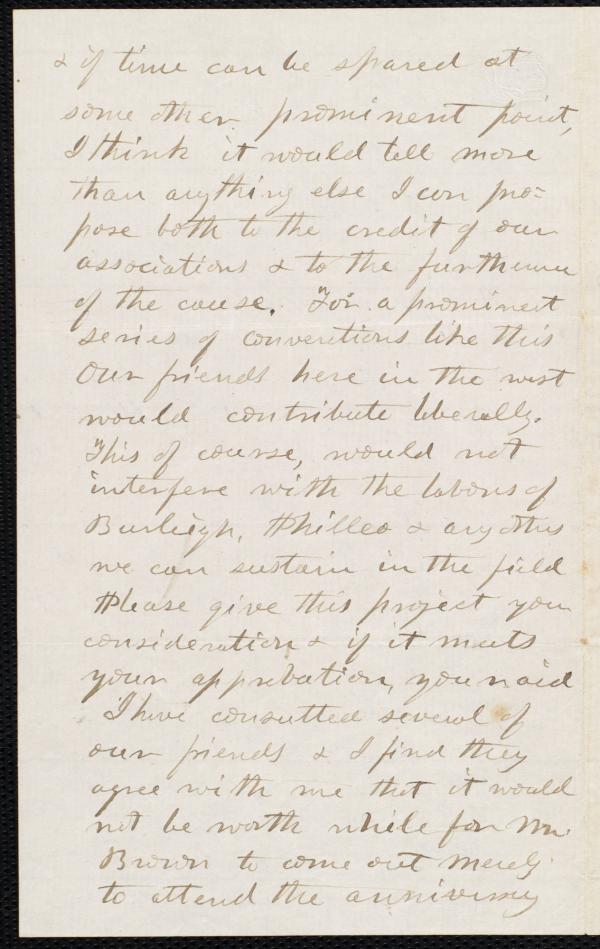 & if time can be spared at
some other prominent point,
I think it would tell more
than anything else I can pro-
pose both to the credit of our
associations & to the furtherance
of the cause. For a prominent
series of conventions like this
Our friends here in the west
would contribute liberally.
This of course, would not
interfere with the labours of
Burleigh, Philleo & any others
we can sustain in the field
Please give this project your
consideration & if it meets
your approbation, your aid
I have consulted several of
our friends & I find they
agree with me that it would
not be worth while for Mr.
Brown to come out merely
to attend the anniversary